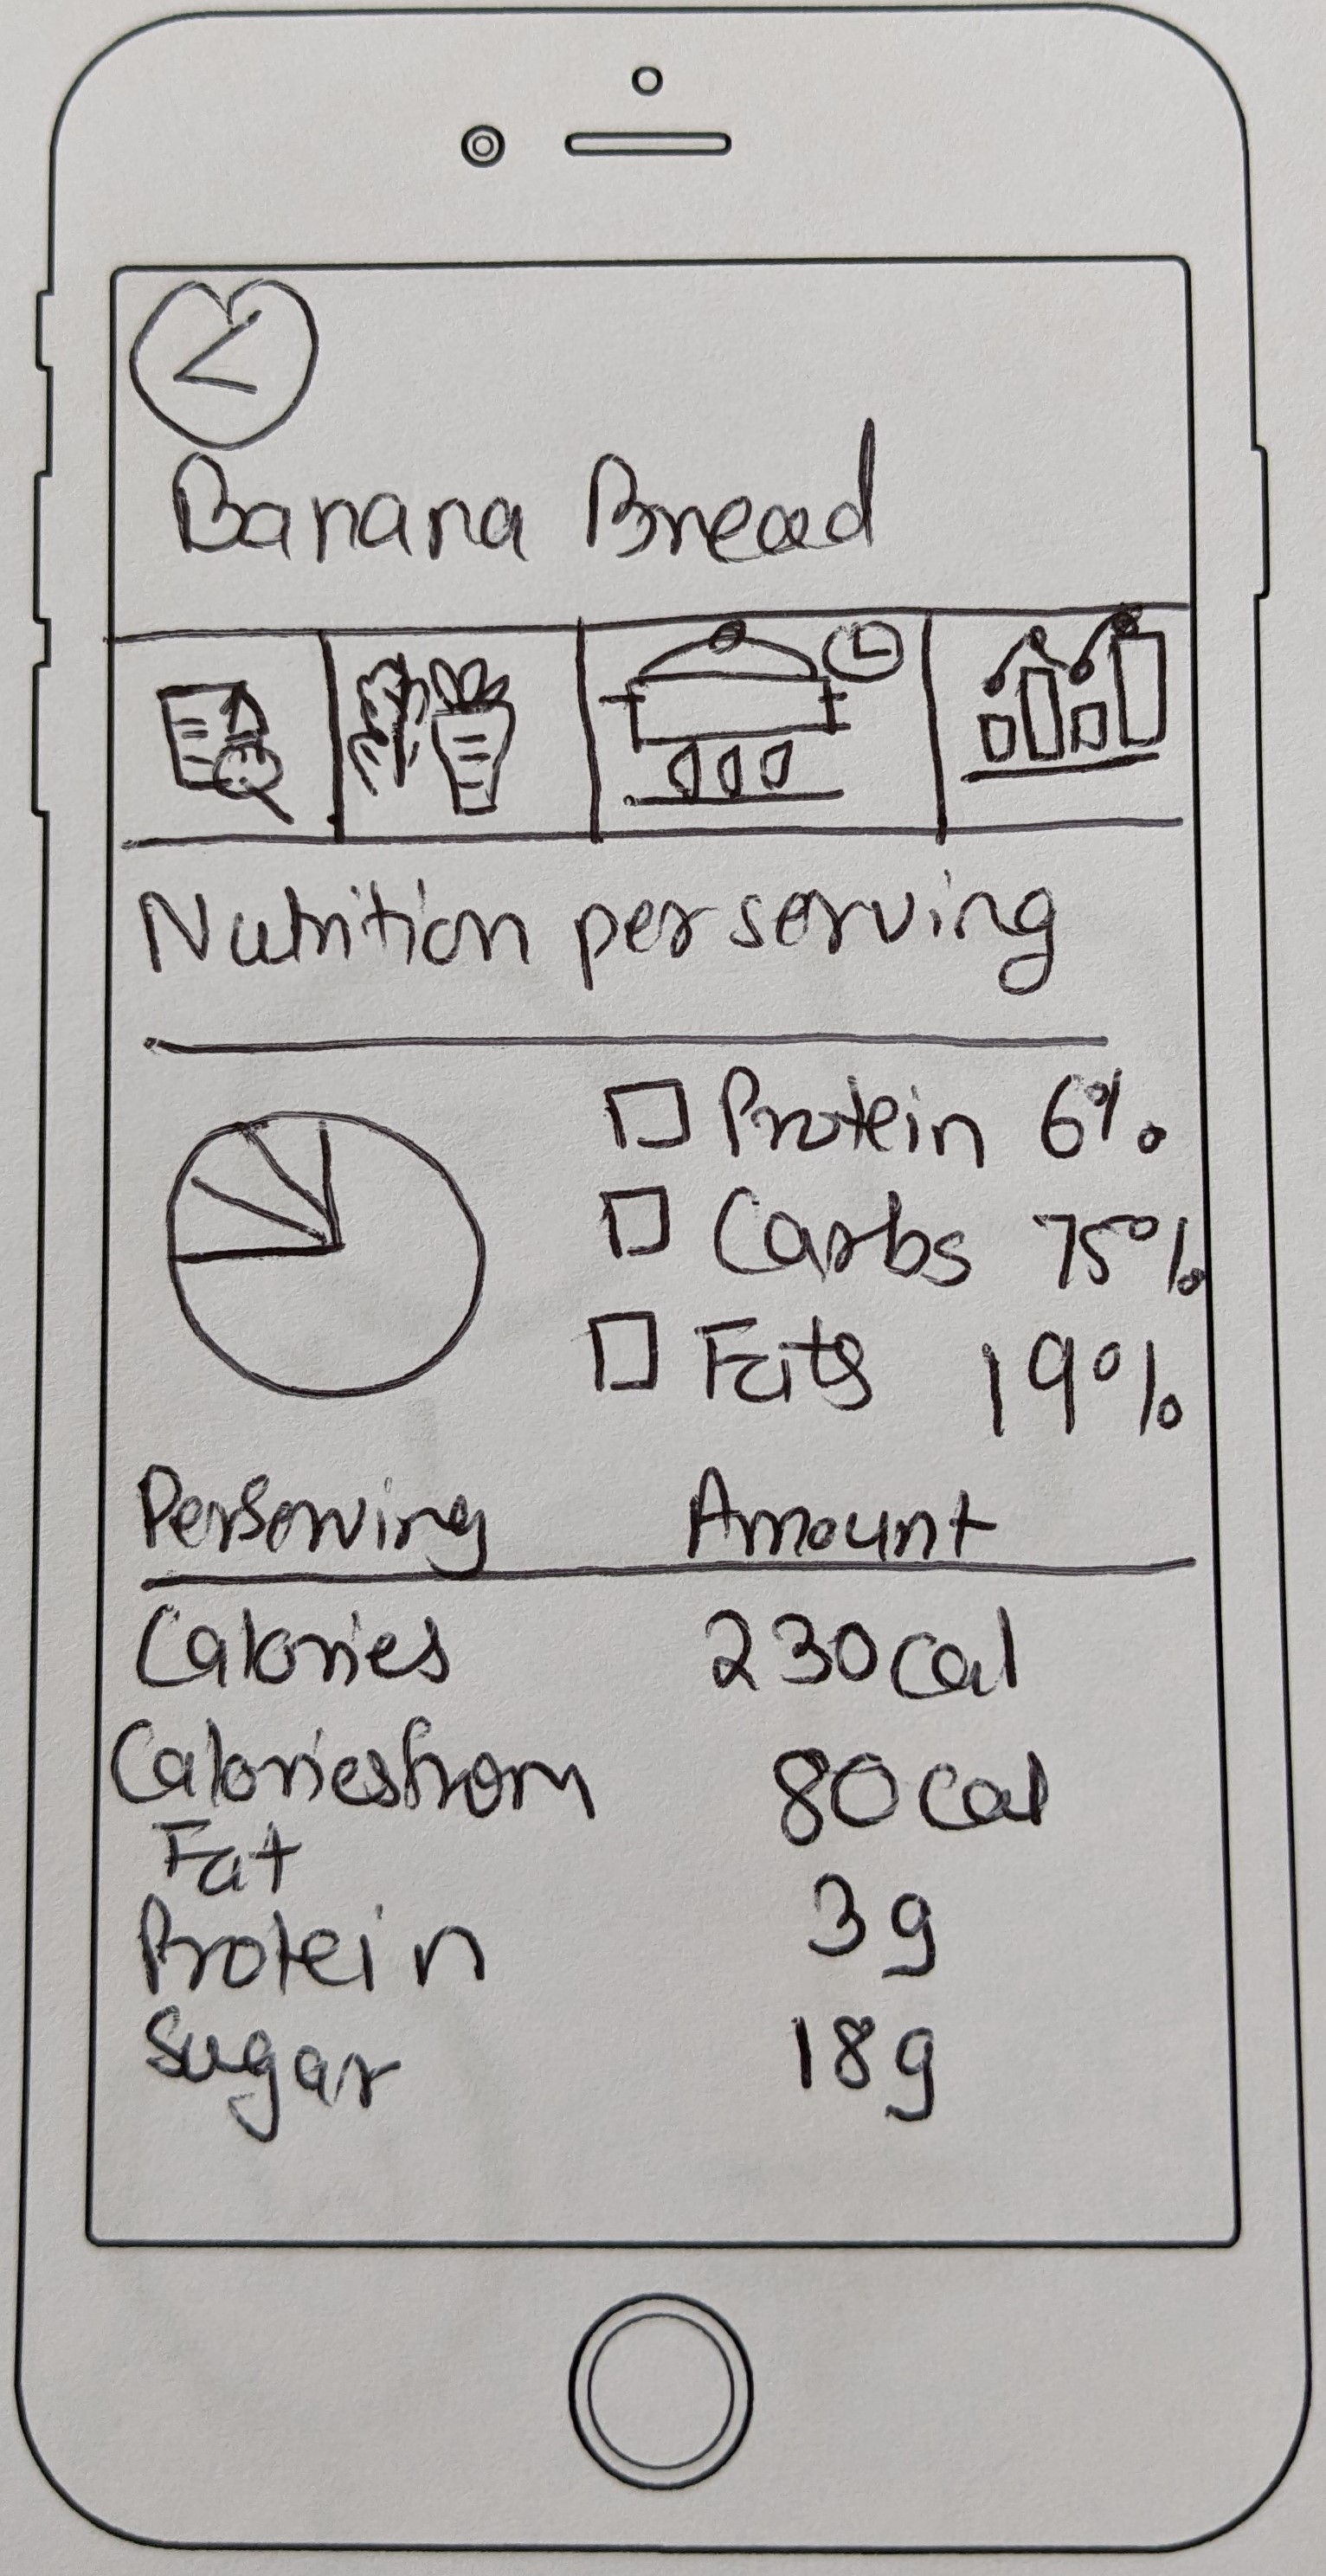 <
Banana Bread
Nutrition per serving
Protein 6%
Carbs 75%
Fats 19%
Perserving Amount
Calories 230 cal
Calories from 80 cal
Fat
Protein 3g
Sugar 18g